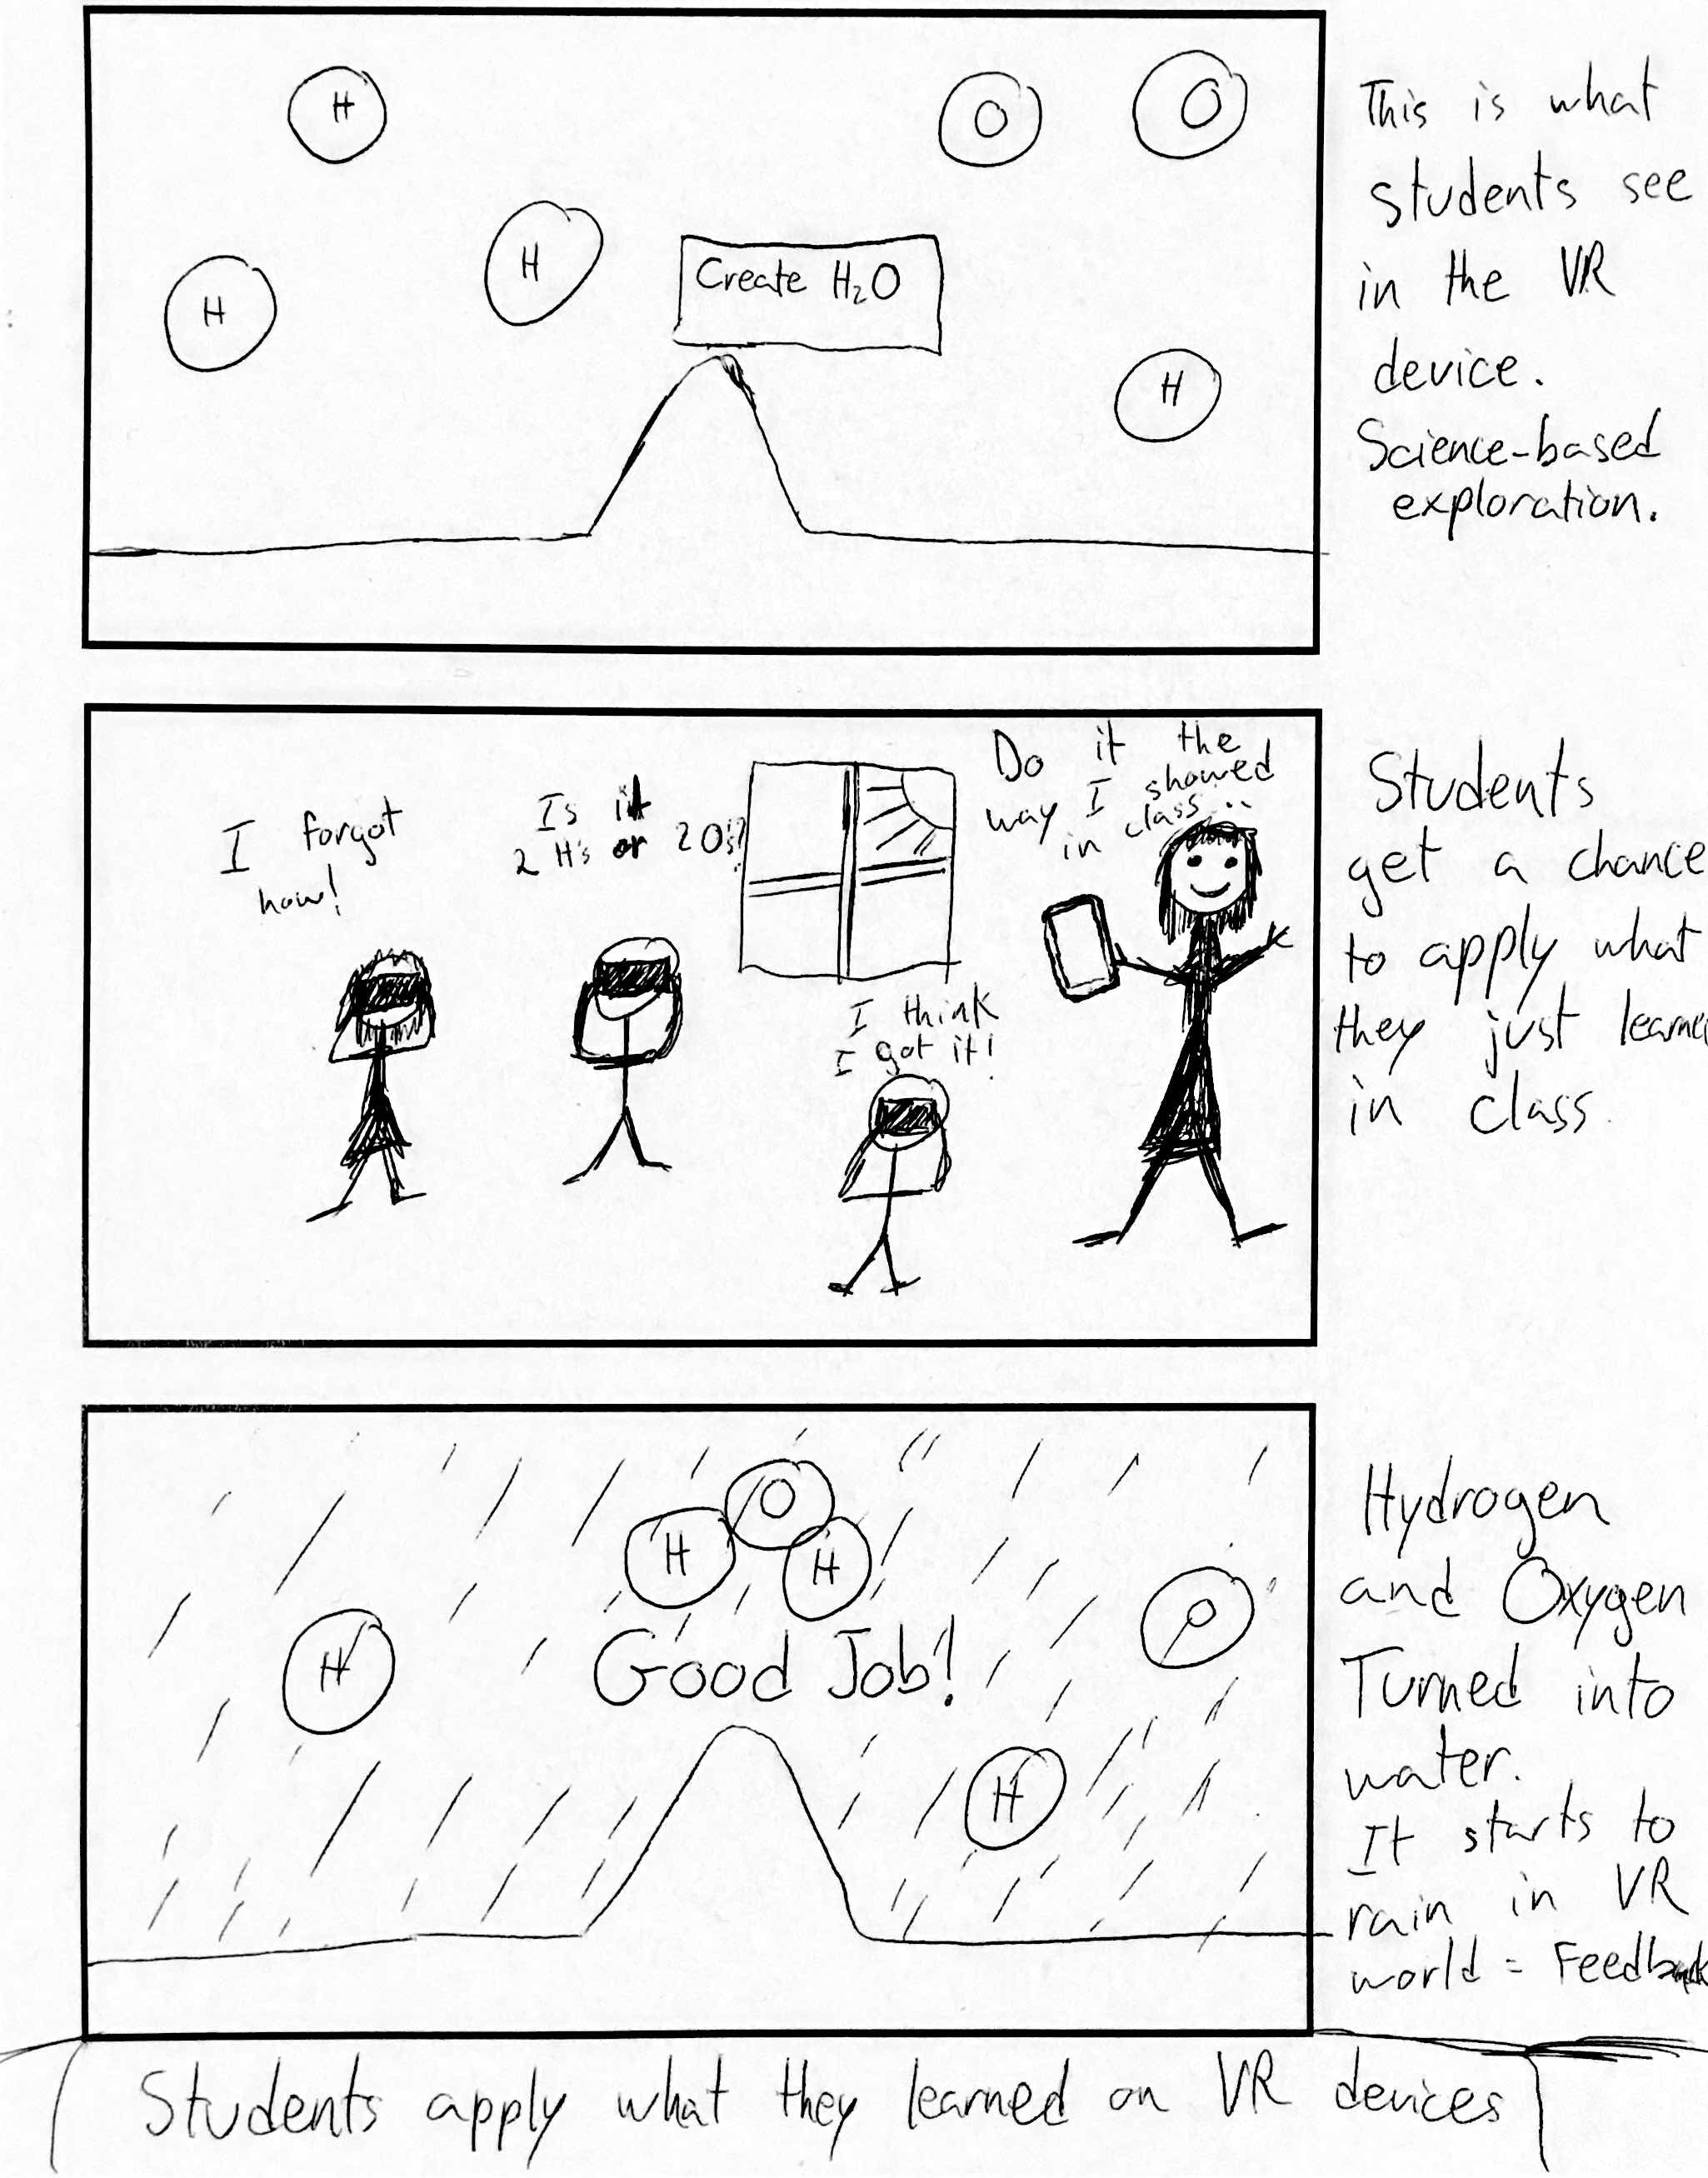 H
O
O
H
H
Create H₂O
H
This is what
students see
in the VR
device.
Science-based
exploration.
I forgot
how!
Is it
2 H's or 2 O's?
I think
I got it!
Do it the
way I showed
in class
Students
get a chance
to apply what
they just learned
in class.
O
H
H
H
O
Good Job!
H
Hydrogen
and Oxygen
Turned into
water.
It starts to
rain in VR
world = Feedback
Students apply what they learned on VR devices